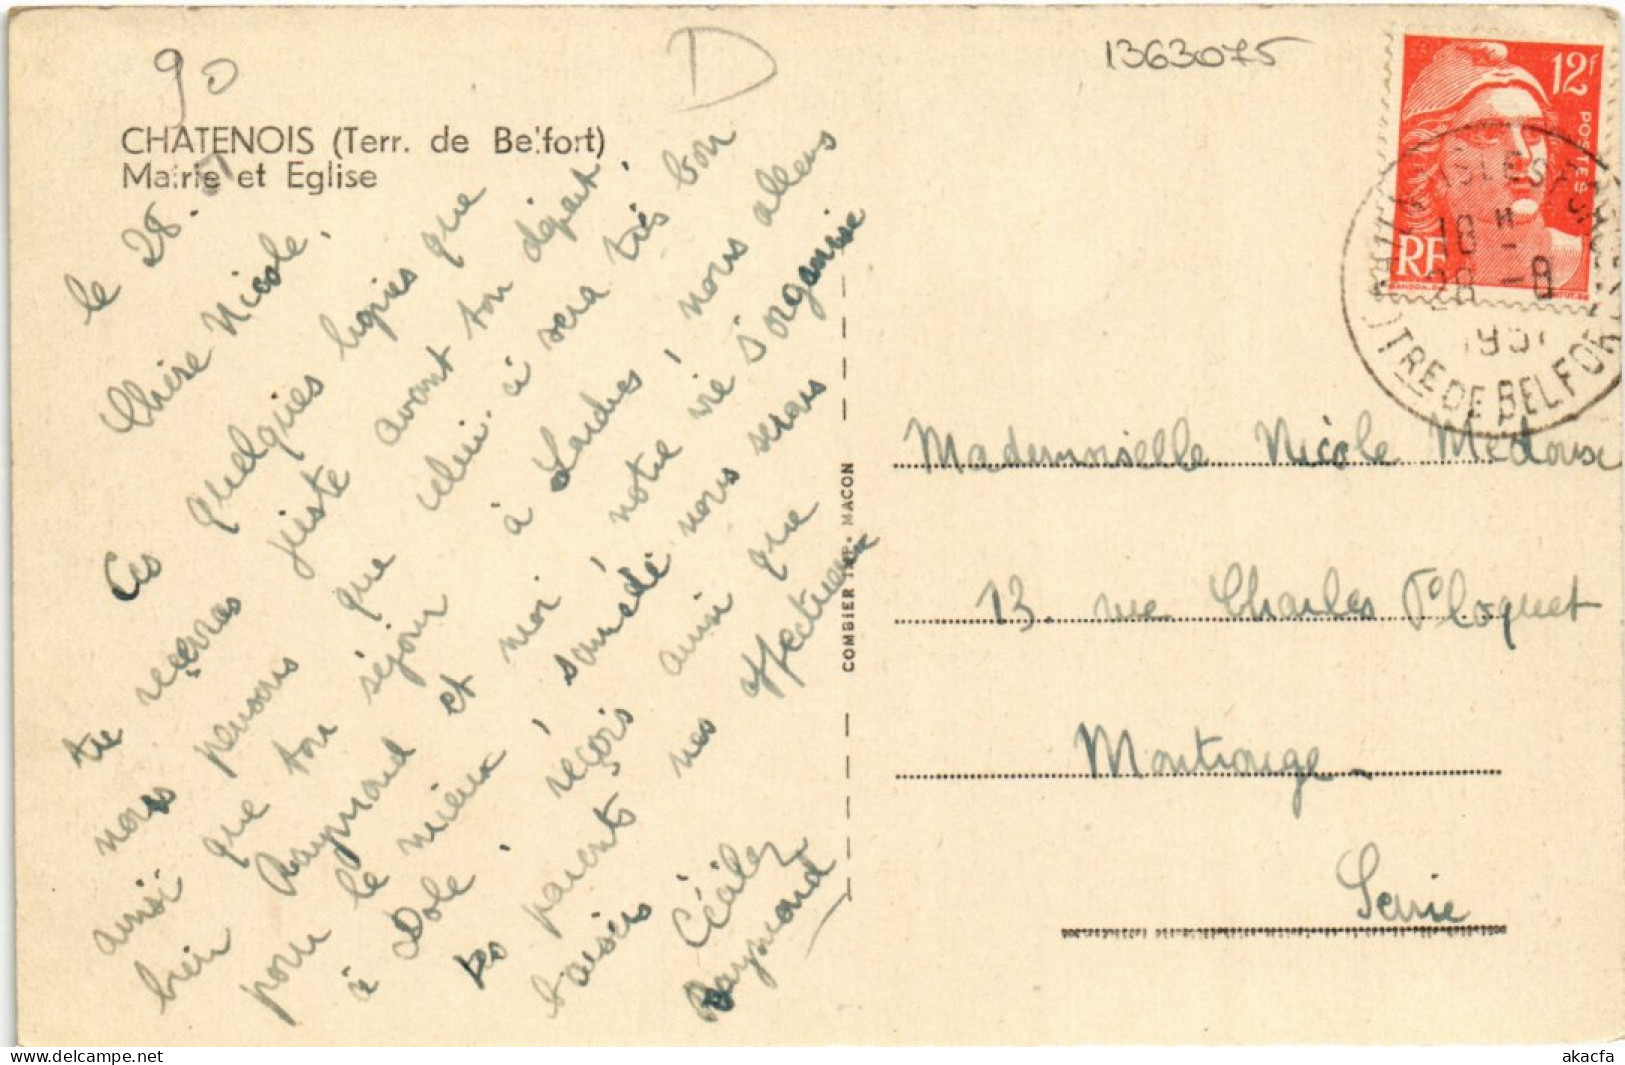 90
D
1363075
CHATENOIS (Terr. de Belfort)
Mairie et Eglise
le 28.
Chère Nicole.
Ces quelques lignes que
tu reçevras juste avant ton départ,
nous pensons que celui-ci sera très bon
ainsi que ton séjour à Lourdes! nous allons
bien Raymond et moi, notre vie s'organise
pour le mieux! samedi nous serons
à Dole, reçois ainsi que
tes parents nos affectueux
baisers
Cécile
Raymond
COMBIER IMP. MACON
12F
POSTES
RF
GANDON
18 H
28 -8
1951
TRE DE BELFORT
Mademoiselle Nicole Medouse
13. rue Charles Floquet
Montrouge
Seine
akacfa